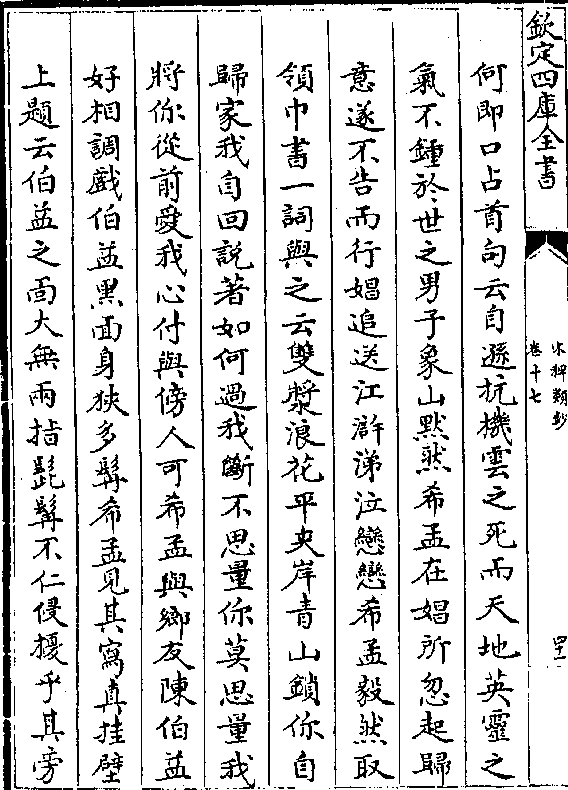 欽定四庫全書
宋稗類鈔
卷十七
四十一
何即口占首句云自遜抗機雲之死而天地英靈之
氣不鍾於世之男子象山默然希孟在娼所忽起歸
意遂不告而行娼追送江滸涕泣戀戀希孟毅然取
領巾書一詞與之云雙槳浪花平夾岸青山鎖你自
歸家我自回說著如何過我斷不思量你莫思量我
將你從前愛我心付與傍人可希孟與鄉友陳伯益
好相調戲伯益黑面身狹多髯希孟見其寫真挂壁
上題云伯益之面大無兩指髭髯不仁侵擾乎其旁